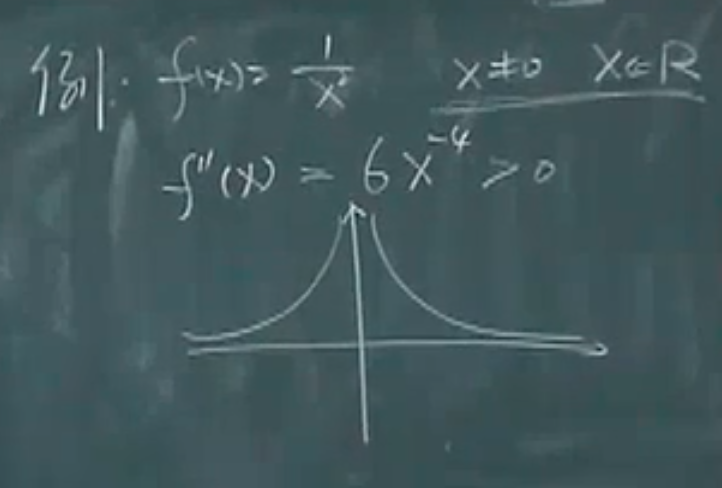 例: f(x)= 1/x² x≠0 x∈R
f''(x) = 6x⁻⁴ > 0